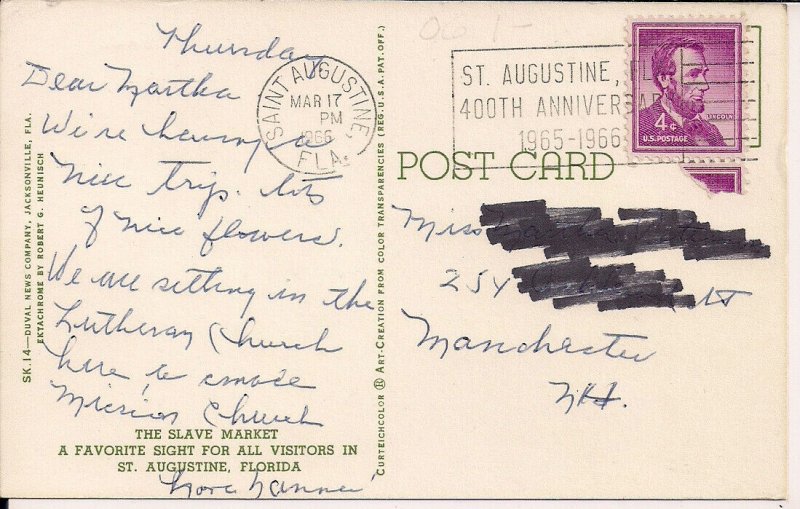 Thursday
Dear Martha
We're having a
nice trip. lots
of nice flowers.
We are sitting in the
Lutheran Church
here, a
Mission Church
THE SLAVE MARKET
A FAVORITE SIGHT FOR ALL VISITORS IN
ST. AUGUSTINE, FLORIDA
SK.14—DUVAL NEWS COMPANY, JACKSONVILLE, FLA.
EKTACHROME BY ROBERT G. HEUNISCH
CURTEICHCOLOR ® ART-CREATION FROM COLOR TRANSPARENCIES (REG. U.S.A. PAT. OFF.)
SAINT AUGUSTINE,
MAR 17
PM
1966
FLA.
ST. AUGUSTINE,
400TH ANNIVERSA
1965-1966
4¢
LINCOLN
U.S. POSTAGE
POST CARD
Miss
254
Manchester
N.H.